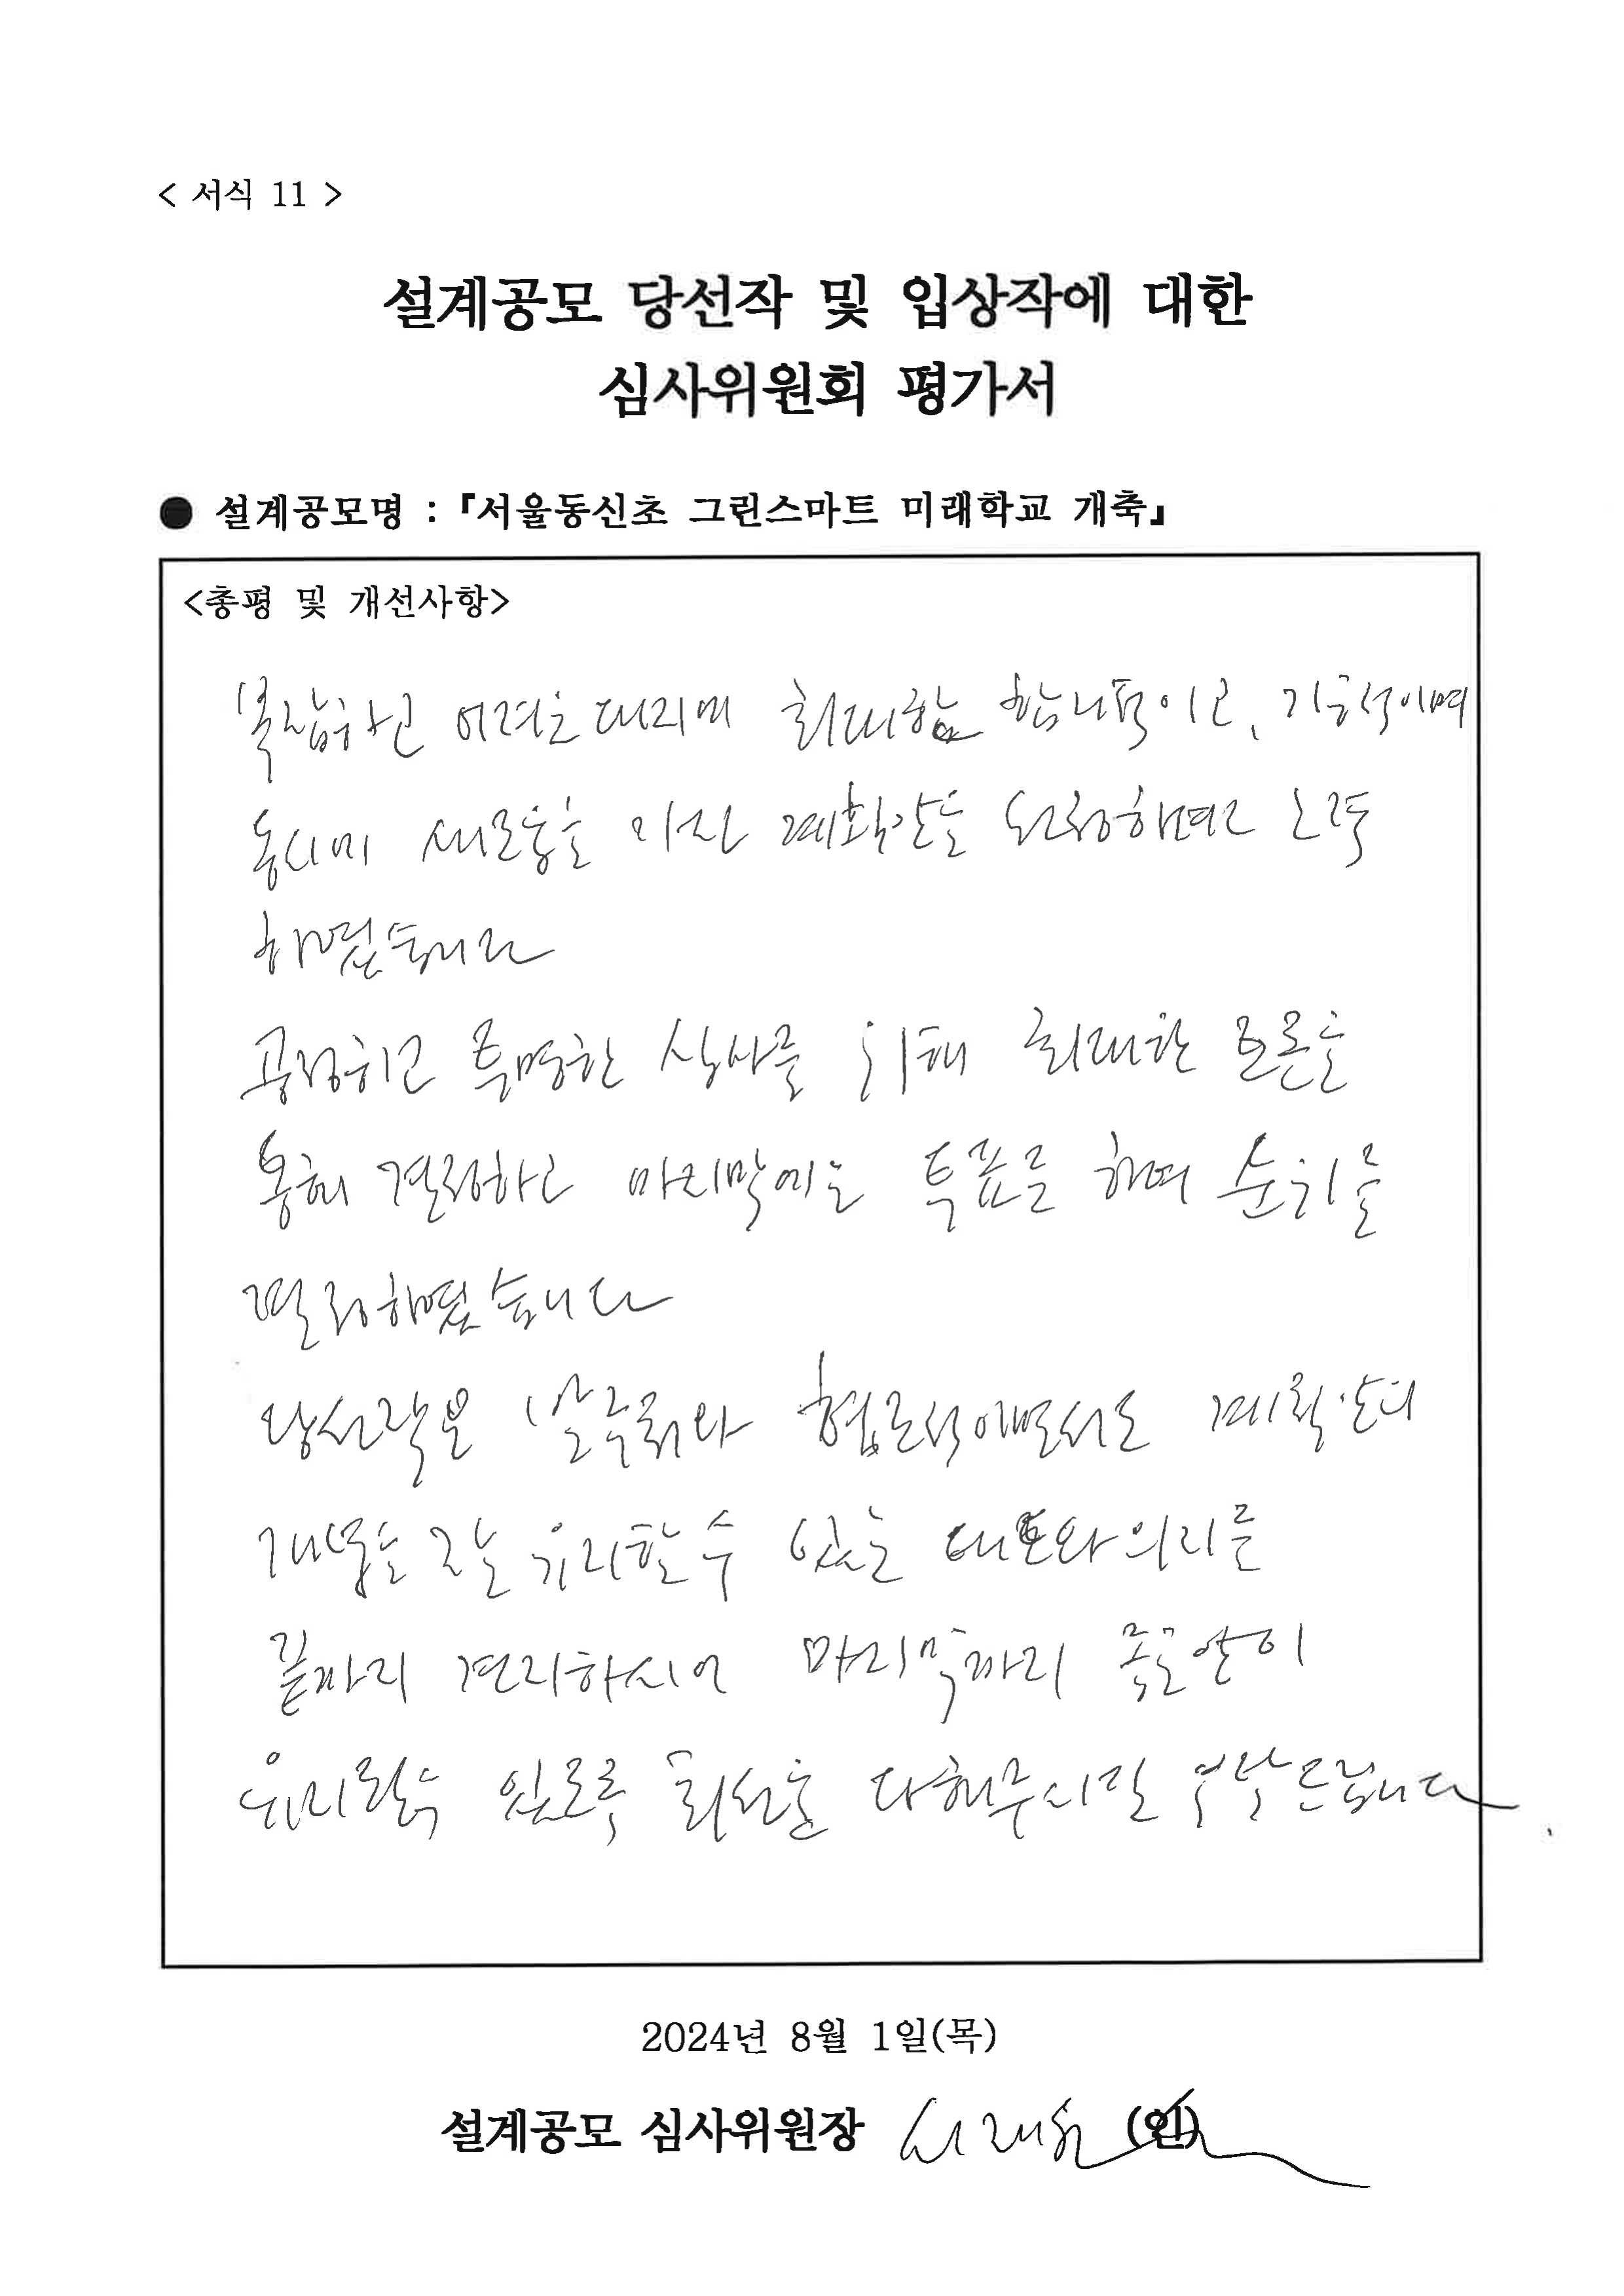 < 서식 11 >
설계공모 당선작 및 입상작에 대한
심사위원회 평가서
● 설계공모명 : 『서울동신초 그린스마트 미래학교 개축』
<총평 및 개선사항>
복잡하고 어려운 대지에 최대한 합리적이고,
동시에 새로움을 가진 계획안을 선정하려고 노력
하였습니다
공정하고 투명한 심사를 위해 최대한 토론을
통해 결정하고 마지막에는 투표를 하여 순위를
결정하였습니다
당선작은 발주처와 협조적이면서도 계획안의
개념을 잘 유지할 수 있는 태도와 의지를
끝까지 견지하시어 마지막까지
유지될 수 있도록 최선을 다해주시길 부탁드립니다.
2024년 8월 1일(목)
설계공모 심사위원장 (인)